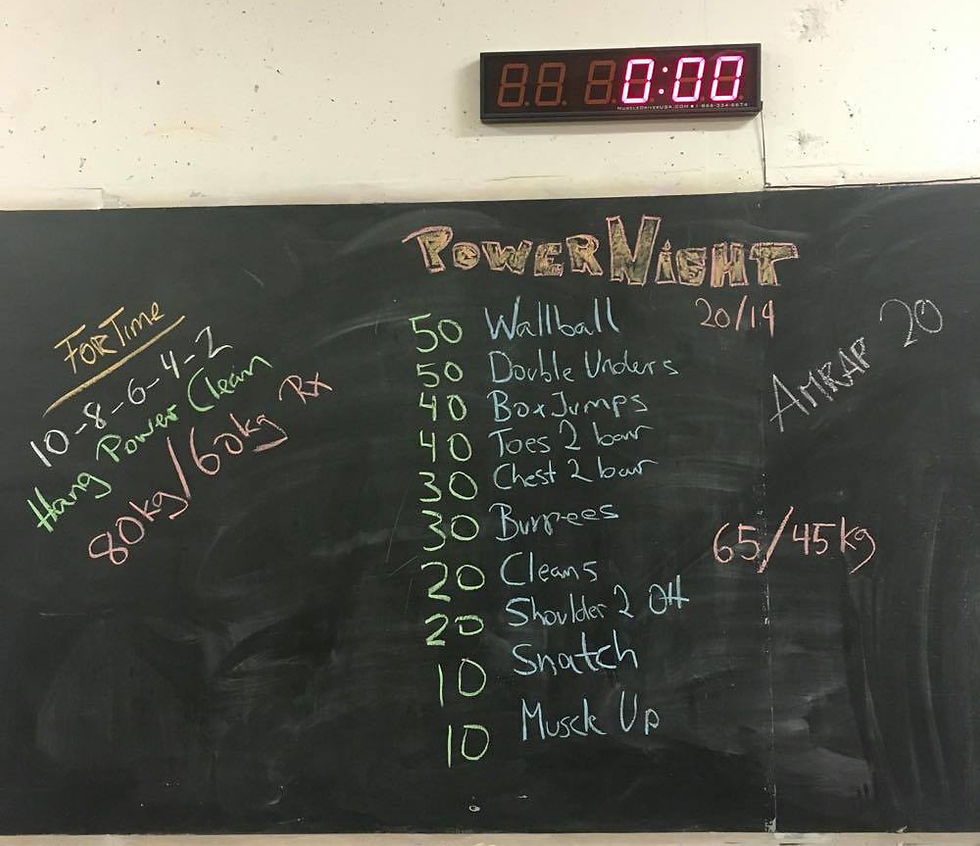 0:00
MUSCLEDRIVERUSA.COM ■ 1-866-334-6674
POWERNIGHT
20/14
50 Wallball
50 Double Unders
40 Box Jumps
40 Toes 2 bar
30 Chest 2 bar
30 Burpees
20 Cleans
20 Shoulder 2 OH
10 Snatch
10 Muscle Up
For Time
10-8-6-4-2
Hang Power Clean
80kg/60kg Rx
AMRAP 20
65/45kg